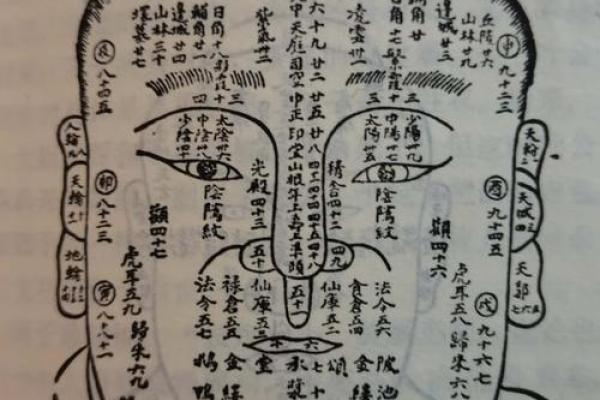 丘陵廿六
山林廿九
邊城廿三
輔角廿
日角十七
紫霞十
凌雲廿一
六十九廿二廿五廿八
中天庭司空中正印堂山根年上壽上準頭
紫氣廿二
日角十八
彩霞十
輔角廿一
邊城廿四
山林三十
塚墓廿七
申
九十二三
艮
八十四五
三
三
四
太陽卅五
中陽卅七
少陽卅九
太陰卅六
中陰卅八
少陰四十
陰隲紋
陰隲紋
精舍四十二
光殿四十三
四十一
四十四
四十五
四十八
四九
五十
酉
九十四五
卯
八十二三
顴四十六
顴四十七
天輪二
天城四
天郭
七六五
人輪
天輪
地輪
虎耳五八
歸來六八
虎耳五九
歸來六九
戌
九十六七
寅
八十八十一
五十一
仙庫五二
食倉五四
法令五六
仙庫五三
祿倉五五
法令五七
六十
陂池
金縷
頌堂
金縷
鵝鴨
承漿
七十